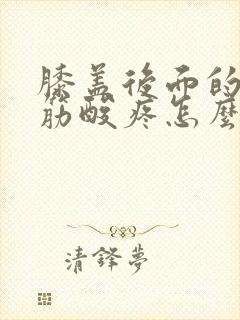 膝盖後面的
筋酸疼怎麼
清鋒夢